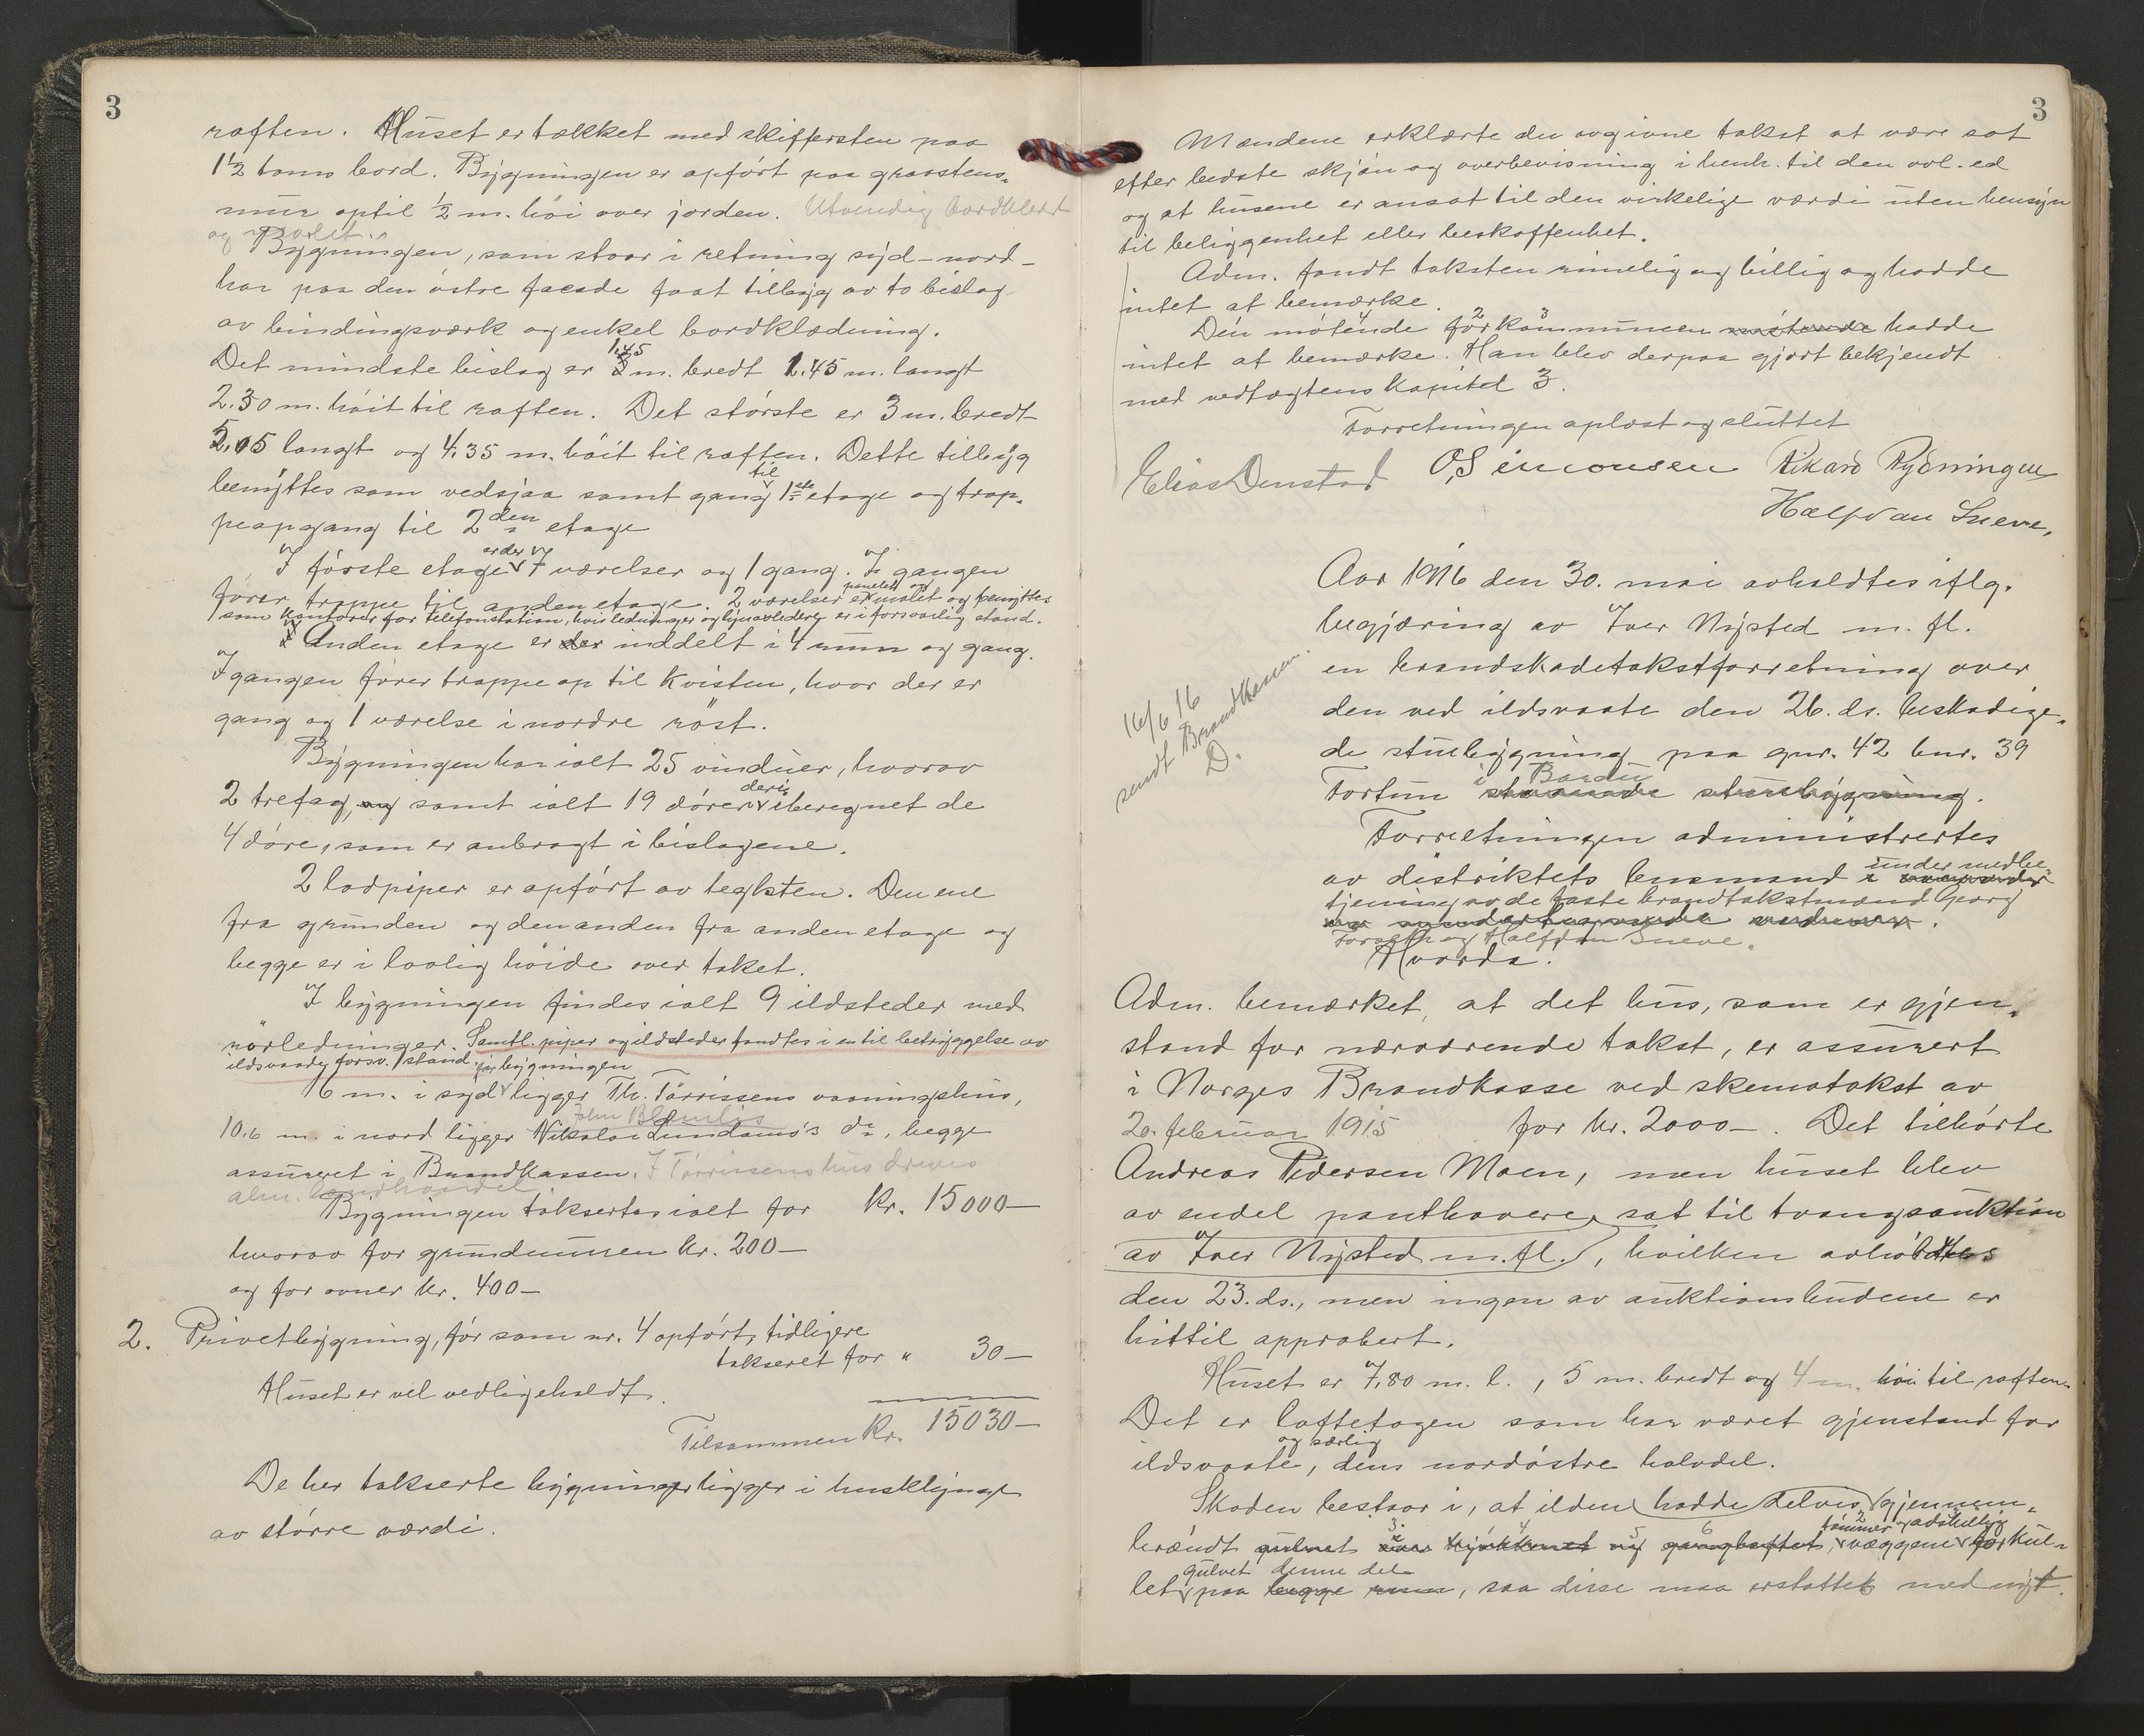 3
raften. Huset er tækket med skiffersten paa
1 1/2 toms bord. Bygningen er opført paa graastens-
mur optil 1/2 m. höi over jorden. Utvendig bordklædt
og malet.
Bygningen, som staar i retning syd-nord-
har paa den østre facade faat tilbyg av to bislag
av bindingsværk og enkel bordklædning.
1.45
Det mindste bislag er m. bredt 1.45 m. langt
2.30 m. höit til raften. Det største er 3 m. bredt
5.05 langt og 4.35 m. höit til raften. Dette tilbyg
til
benyttes som vedsjaa samt gang 1ste etage og trap-
peopgang til 2den etage
er der
I første etage 7 værelser og 1 gang. I gangen
fører trappe til anden etage. 2 værelser er panelet og malet og benyttes
som kontorer for telefonstation, hvis ledninger og lynavledere er i forsvarlig stand.
Anden etage er der inddelt i 4 rum og gang.
I gangen fører trappe op til kvisten, hvor der er
gang og 1 værelse i nordre röst.
Bygningen har ialt 25 vinduer, hvorav
deri
2 trefag, og samt ialt 19 dører iberegnet de
4 døre, som er anbragt i bislagene.
2 lodpiper er opført av teglsten. Den ene
fra grunden og den anden fra anden etage og
begge er i lovlig höide over taket.
I bygningen findes ialt 9 ildsteder med
rörledninger. Samtl. piper og ildsteder fandtes i en til betryggelse av
ildsvaade forsv. stand.
for bygningen
6 m. i syd ligger Th. Törrissens vaaningshus,
John
10.6 m. i nord ligger Nikolai Lundamo's do, begge
assureret i Brandkassen. I Törrissens hus drives
alm. landhandel
Bygningen takseres ialt for Kr. 15000—
hvorav for grundmuren kr. 200—
og for ovner kr. 400—
2. Privetbygning, før som nr. 4 opført, tidligere
takseret for " 30—
Huset er vel vedlikeholdt.
Tilsammen Kr. 15030—
De her takserte bygninger ligger i husklynge
av större værdi.
3
Mændene erklærte den avgivne takst at være sat
efter bedste skjøn og overbevisning i henh. til den avl. ed
og at husene er ansat til den virkelige værdi uten hensyn
til beliggenhet eller beskaffenhet.
Adm. fandt taksten rimelig og billig og hadde
intet at bemærke.
4 2 3
Den møtende for kommunen møtende hadde
intet at bemærke. Han blev derpaa gjort bekjendt
med vedtægtens kapitel 3.
Forretningen oplæst og sluttet
Elias Denstad O. Simonsen Rikard Rydningen
Halfdan Sneve.
Aar 1916 den 30. mai avholdtes iflg.
begjæring av Iver Nysted m. fl.
en brandskadetakstforretning over
den ved ildsvaate den 26. ds. beskadige-
de stuebygning paa gnr. 42 bnr. 39
i Bardu
Fortun staaende stuebygning.
16/6 16
sendt Brandkassen.
D.
Forretningen administrertes
under medbe-
av distriktets lensmand i
tjening av de faste brandtakstmænd Georg
Foraeth og Halfdan Sneve.
Hvorda:
Adm. bemærket, at det hus, som er gjen-
stand for nærværende takst, er assurert
i Norges Brandkasse ved skematakst av
20. februar 1915 for kr. 2000—. Det tilhørte
Andreas Pedersen Moen, men huset blev
av endel panthavere, sat til tvangsauktion
av Iver Nysted m.fl., hvilken avholdtes
den 23. ds., men ingen av auktionsbudene er
hittil approbert.
Huset er 7,80 m. l., 5 m. bredt og 4 m. höi til raften.
Det er loftetagen som har været gjenstand for
og særlig
ildsvaate, dens nordøstre halvdel.
Skaden bestaar i, at ilden hadde delvis gjennem-
3. 4 5 6 tømmer og adskillig 2
brændt gulvet i kjøkkenet og gangloftet, væggene forkul-
gulvet denne del
let paa begge rum, saa disse maa erstattes med nyt.